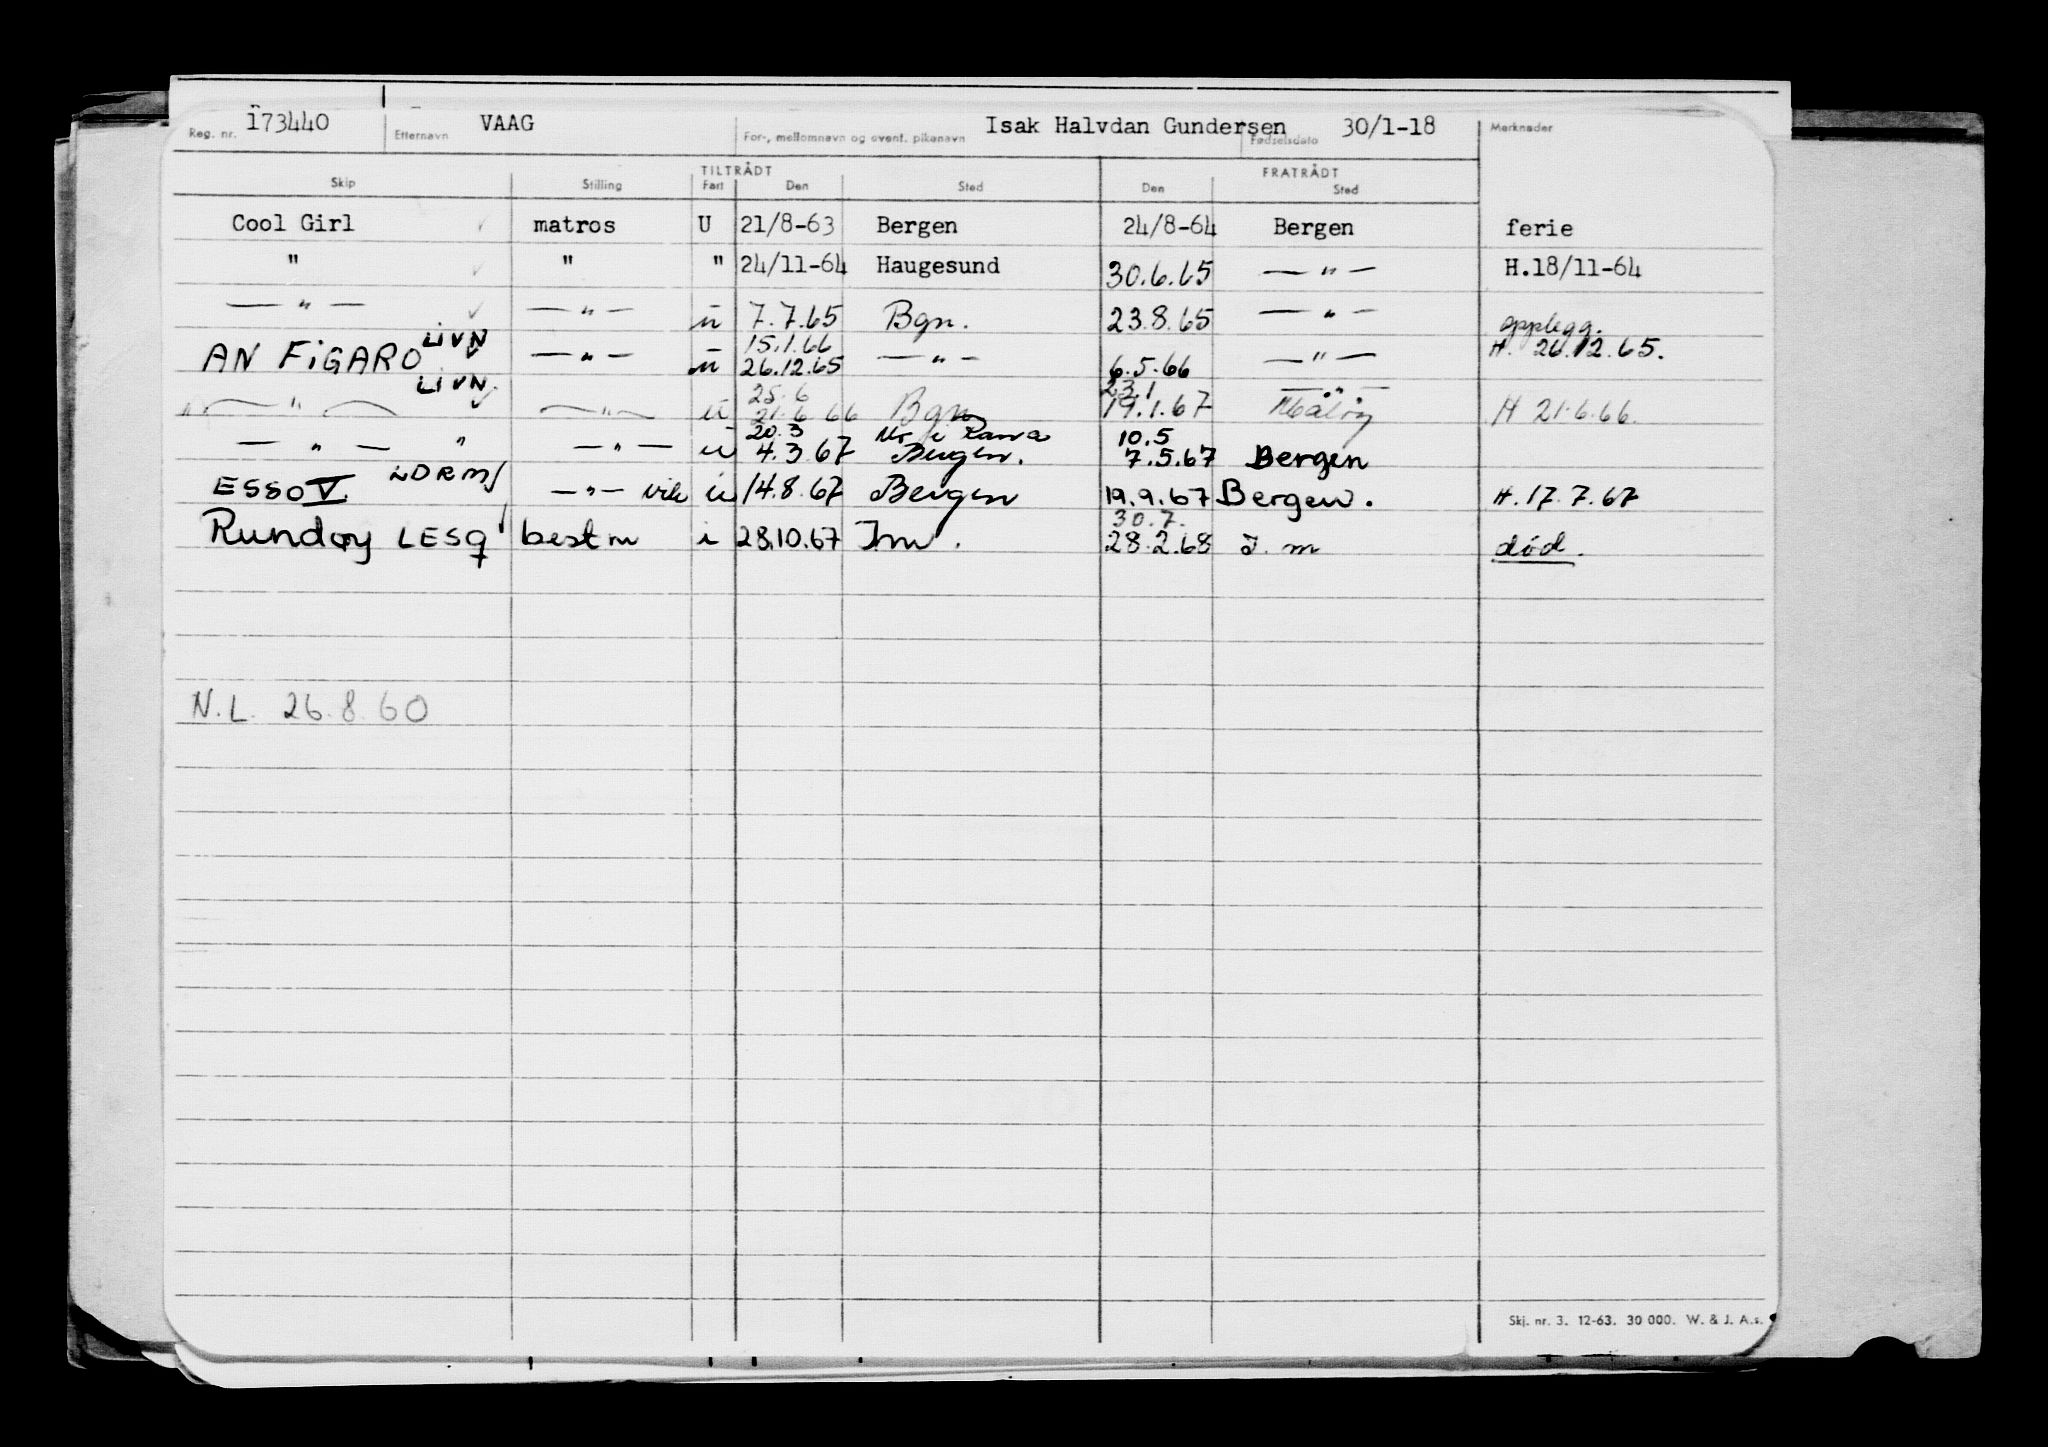 Reg. nr. 173440 Etternavn VAAG For-, mellomnavn og event. pikenavn Isak Halvdan Gundersen Fødselsdato 30/1-18 Merknader
TILTRÅDT FRATRÅDT
Skip Stilling Fart Den Sted Den Sted
Cool Girl matros U 21/8-63 Bergen 24/8-64 Bergen ferie
" " " 24/11-64 Haugesund 30.6.65 — " — H.18/11-64
— " — — " — u 7.7.65 Bgn. 23.8.65 — " — opplegg.
LIVN 15.1.66
AN FIGARO — " — u 26.12.65 — " — 6.5.66 — " — H. 26.12.65.
LIVN 25.6 23.1 — " —
" — " — — " — u 21.6 66 Bgn 19.1.67 Måløy H 21.6.66.
20.3 Mo i Rana 10.5
— " — " — " — u 4.3.67 Bergen. 7.5.67 Bergen
ESSO V LDRM — " — vik u 14.8.67 Bergen 19.9.67 Bergen. H. 17.7.67
30.7.
Rundøy LESQ bestm i 28.10.67 Im. 28.2.68 I. m død.
N.L. 26.8.60
Skj. nr. 3. 12-63. 30 000. W. & J. A.s.